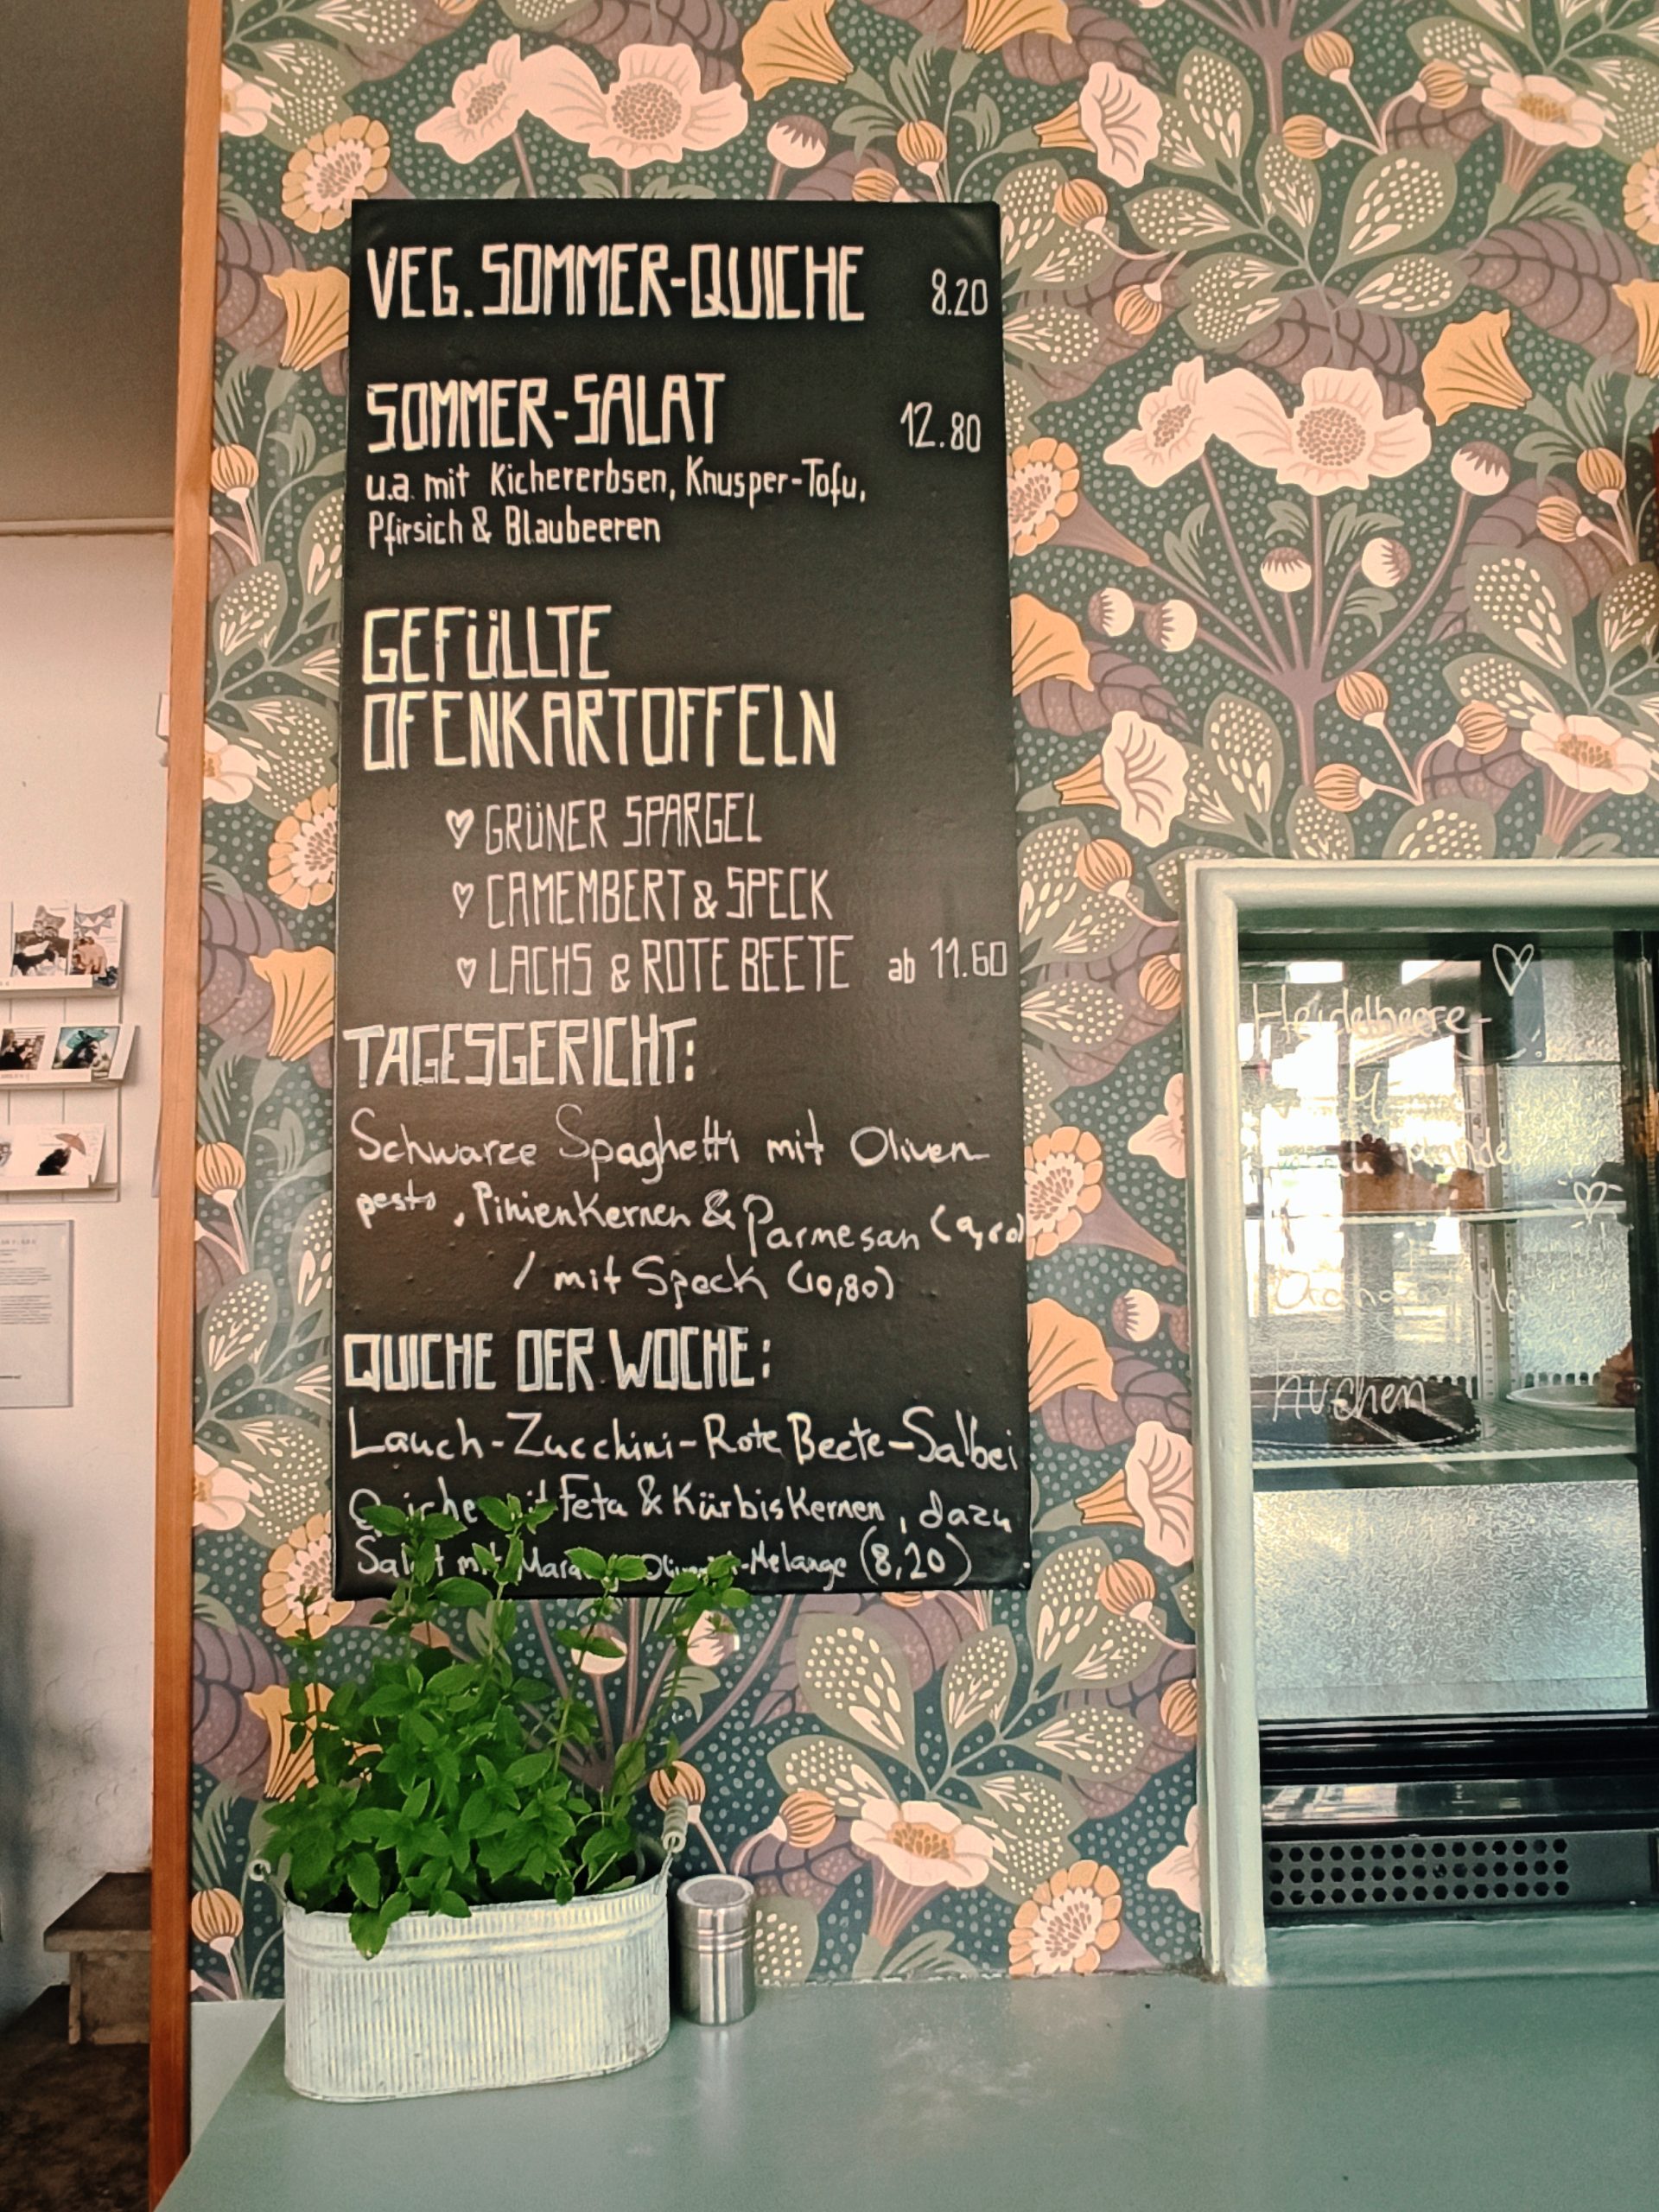 VEG. SOMMER-QUICHE 8.20
SOMMER-SALAT 12.80
u.a. mit Kichererbsen, Knusper-Tofu,
Pfirsich & Blaubeeren
GEFÜLLTE
OFENKARTOFFELN
♡ GRÜNER SPARGEL
♡ CAMEMBERT & SPECK
♡ LACHS & ROTE BEETE ab 11.60
TAGESGERICHT:
Schwarze Spaghetti mit Oliven-
pesto, Pinienkernen & Parmesan
/ mit Speck (10,80)
QUICHE DER WOCHE:
Lauch-Zucchini-Rote Beete-Salbei
Quiche mit Feta & Kürbiskernen, dazu
Salat mit -Melange (8,20)
Heidelbeere-
Kuchen